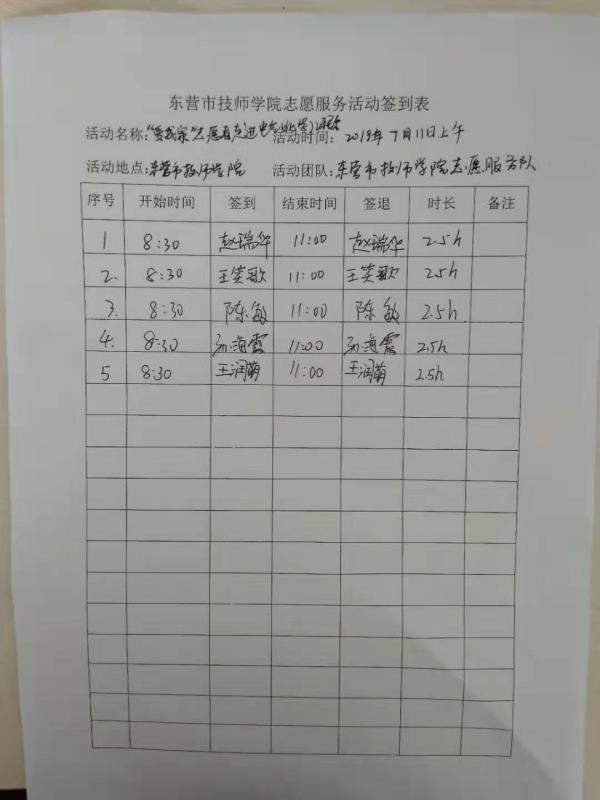 东营市技师学院志愿服务活动签到表
活动名称:"爱我家"志愿者走进 活动时间: 2019年7月11日上午
活动地点:东营市技师学院 活动团队:东营市技师学院志愿服务队
序号 开始时间 签到 结束时间 签退 时长 备注
1 8:30 赵瑞华 11:00 赵瑞华 2.5h
2. 8:30 王笑歌 11:00 王笑歌 2.5h
3. 8:30 陈敏 11:00 陈敏 2.5h
4. 8:30 孙海霞 11:00 孙海霞 2.5h
5 8:30 王润萌 11:00 王润萌 2.5h